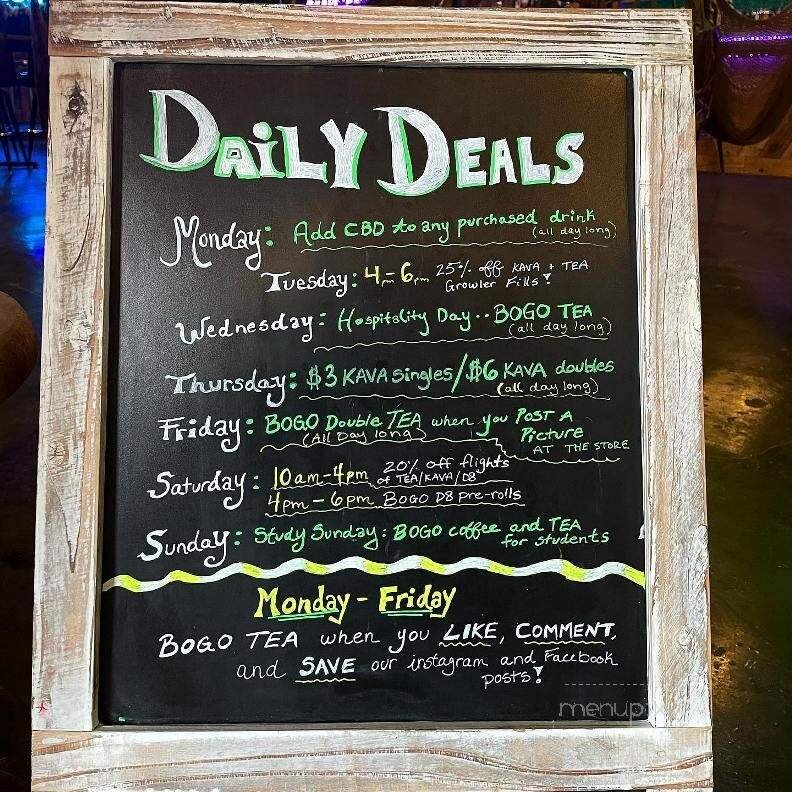 DAiLY DEALS
Monday: Add CBD to any purchased drink
(all day long)
Tuesday: 4pm - 6pm 25% off KAVA + TEA
Growler Fills!
Wednesday: Hospitality Day.. BOGO TEA
(all day long)
Thursday: $3 KAVA singles/$6 KAVA doubles
(all day long)
Friday: BOGO Double TEA when you POST A
(All Day long) Picture
AT THE STORE
Saturday: 10am-4pm 20% off flights
of TEA/KAVA/D8
4pm - 6pm BOGO D8 pre-rolls
Sunday: Study Sunday: BOGO coffee and TEA
for students
Monday - Friday
BOGO TEA when you LIKE, COMMENT,
and SAVE our instagram and Facebook
posts!
menup